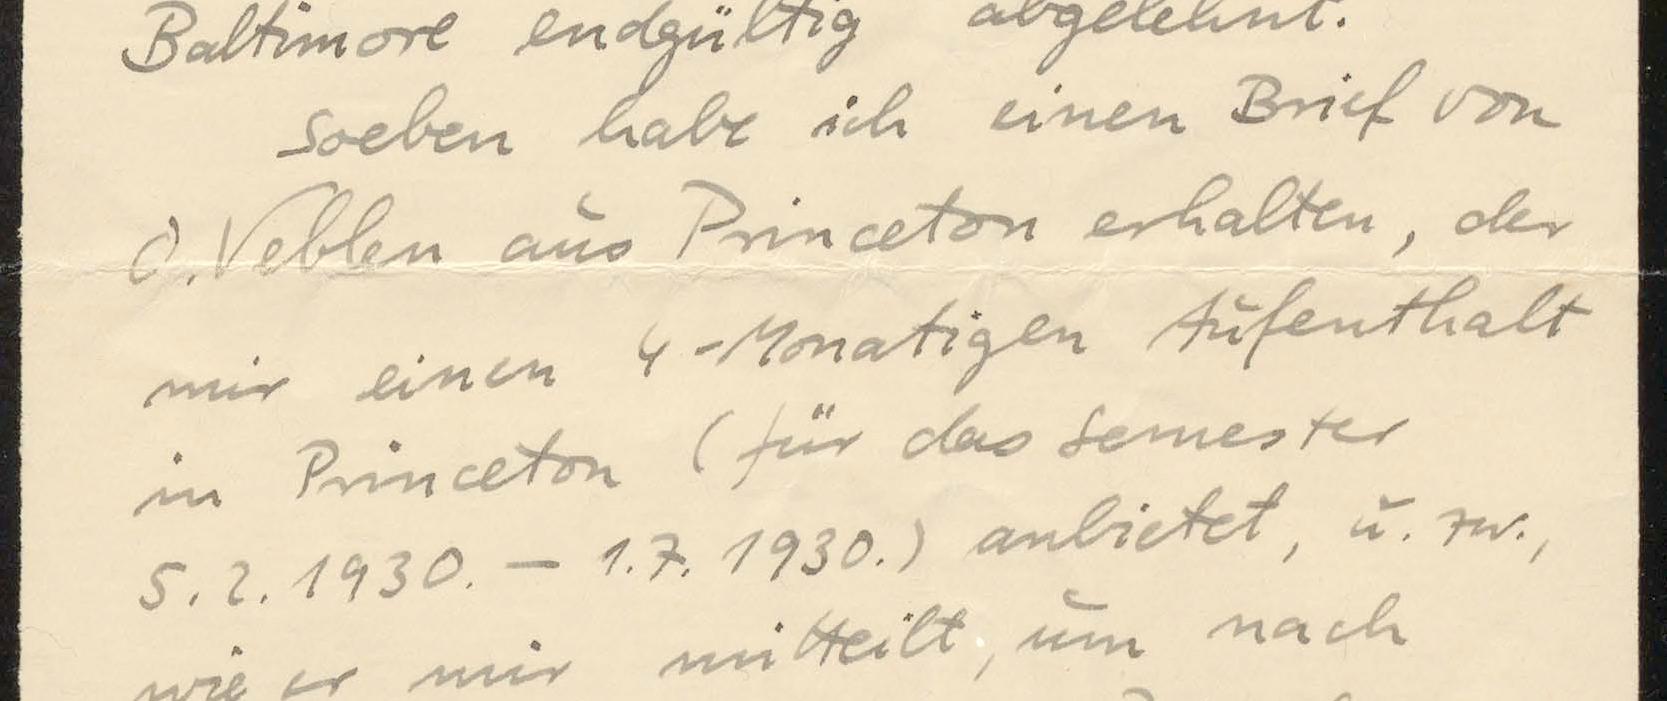 Baltimore endgültig abgelehnt.
Soeben habe ich einen Brief von
O. Veblen aus Princeton erhalten, der
mir einen 4-Monatigen Aufenthalt
in Princeton (für das Semester
5.2.1930. – 1.7.1930.) anbietet, u. zw.,
wie er mir mitteilt, um nach